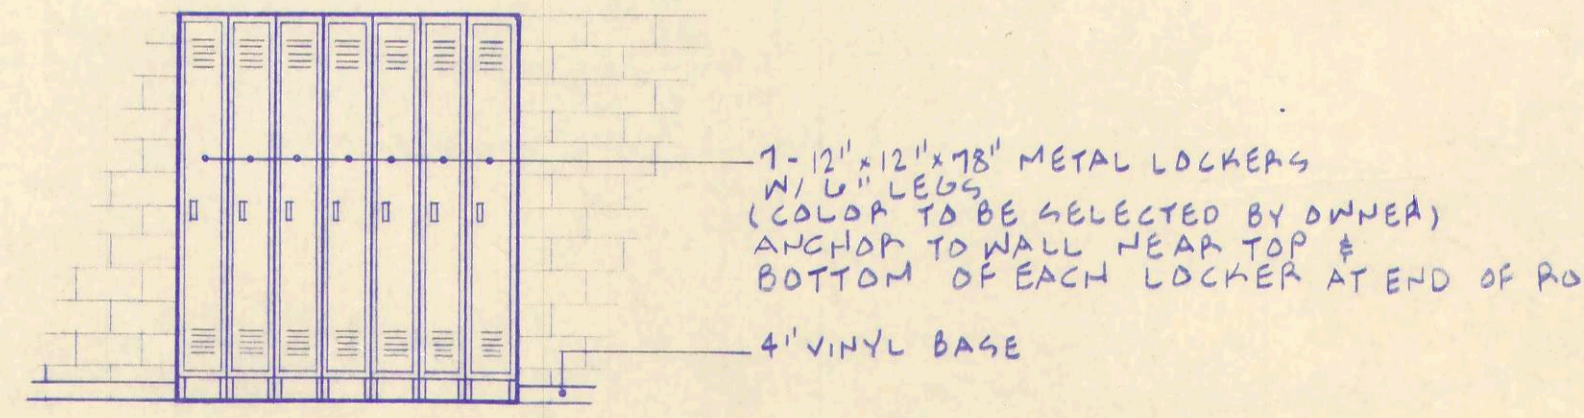 7-12"x12"x78" METAL LOCKERS
W/ 6" LEGS
(COLOR TO BE SELECTED BY OWNER)
ANCHOR TO WALL NEAR TOP &
BOTTOM OF EACH LOCKER AT END OF RO
4" VINYL BASE